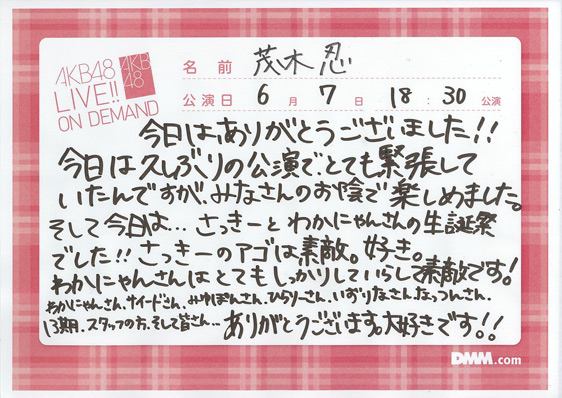 AKB48
LIVE!!
ON DEMAND
AKB
48
名前 茂木忍
公演日 6月7日 18:30公演
今日は、ありがとうございました!!
今日は久しぶりの公演で、とても緊張して
いたんですが、みなさんのお陰で楽しめました。
そして今日は… さっきーとわかにゃんさんの生誕祭
でした!! さっきーのアゴは素敵。好き。
わかにゃんさんはとてもしっかりしていらして素敵です!
わかにゃんさん、サイードさん、みゆぽんさん、ひらりーさん、いずりなさん、なっつんさん、
13期、スタッフの方、そして皆さん… ありがとうございます。大好きです!!
DMM.com